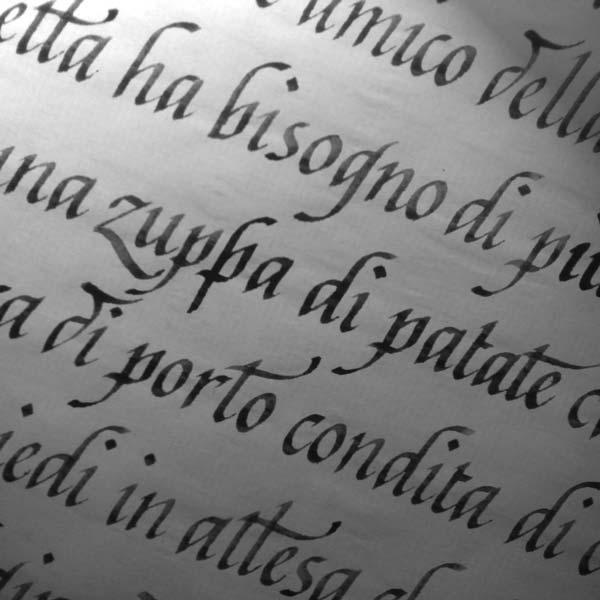 umico della
etta ha bisogno di più
una zuppa di patate
a di porto condita di
iedi in attesa